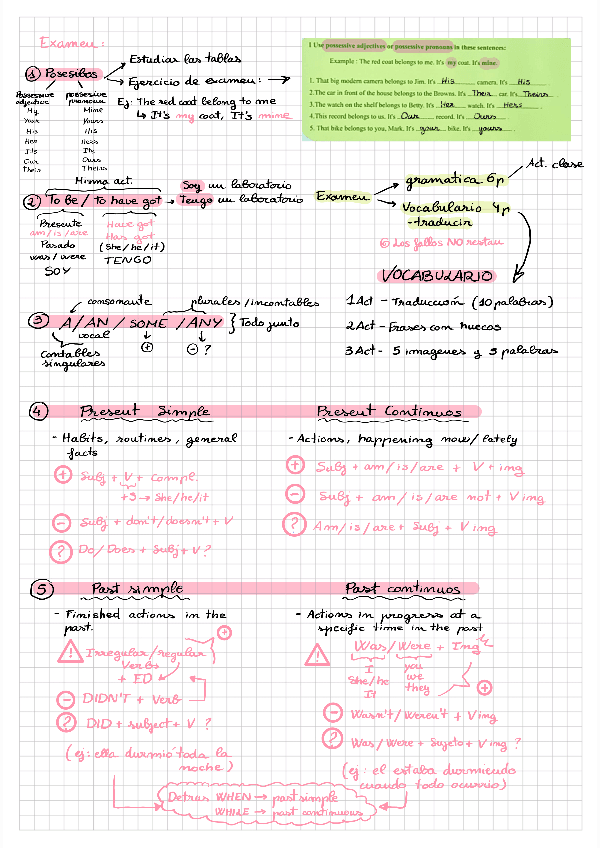 Examen:
① Posesibos
Estudiar las tablas
Ejercicio de examen:
Ej: The red coat belong to me
↳ It's my coat, It's mine
Possessive adjective
possessive pronoun
My Mine
Your Yours
His His
Her Hers
Its Its
Our Ours
Their Theirs
1 Use possessive adjectives or possessive pronouns in these sentences:
Example : The red coat belongs to me. It's my coat. It's mine.
1. That big modern camera belongs to Jim. It's His camera. It's His
2. The car in front of the house belongs to the Browns. It's Their car. It's Theirs
3. The watch on the shelf belongs to Betty. It's Her watch. It's Hers
4. This record belongs to us. It's Our record. It's Ours
5. That bike belongs to you, Mark. It's your bike. It's yours
Misma act.
② To be / To have got →
Soy un laboratorio
Tengo un laboratorio
Presente
am/is/are
Pasado
was/were
SOY
Have got
Has got
(She/he/it)
TENGO
Examen
gramatica 6p
Act. clase
Vocabulario 4p
-traducir
☹ Los fallos NO restan
VOCABULARIO
1 Act - Traducción (10 palabras)
2 Act - Frases con huecos
3 Act - 5 imagenes y 5 palabras
consonante
plurales/incontables
③ A/AN / SOME / ANY } Todo junto
vocal
Contables singulares
+
- ?
④ Present Simple
- Habits, routines, general
facts
+ Subj + V + compl.
+S → She/he/it
- Subj + don't/doesn't + V
? Do/Does + Subj + V?
Present Continuos
- Actions, happening now/lately
+ Subj + am/is/are + V + ing
- Subj + am/is/are not + V ing
? Am/is/are + Subj + V ing
⑤ Past simple
- Finished actions in the
past.
+
! Irregular/regular
Verbs
+ ED
- DIDN'T + Verb
? DID + subject + V ?
(ej: ella durmió toda la
noche)
Past continuos
- Actions in progress at a
specific time in the past
! Was/Were + Ing
I
She/he
It
you
we
they
+
- Wasn't/Weren't + V ing
? Was/Were + Sujeto + V ing ?
(ej: el estaba durmiendo
cuando todo ocurrio)
Detras WHEN → past simple
WHILE → past continuous